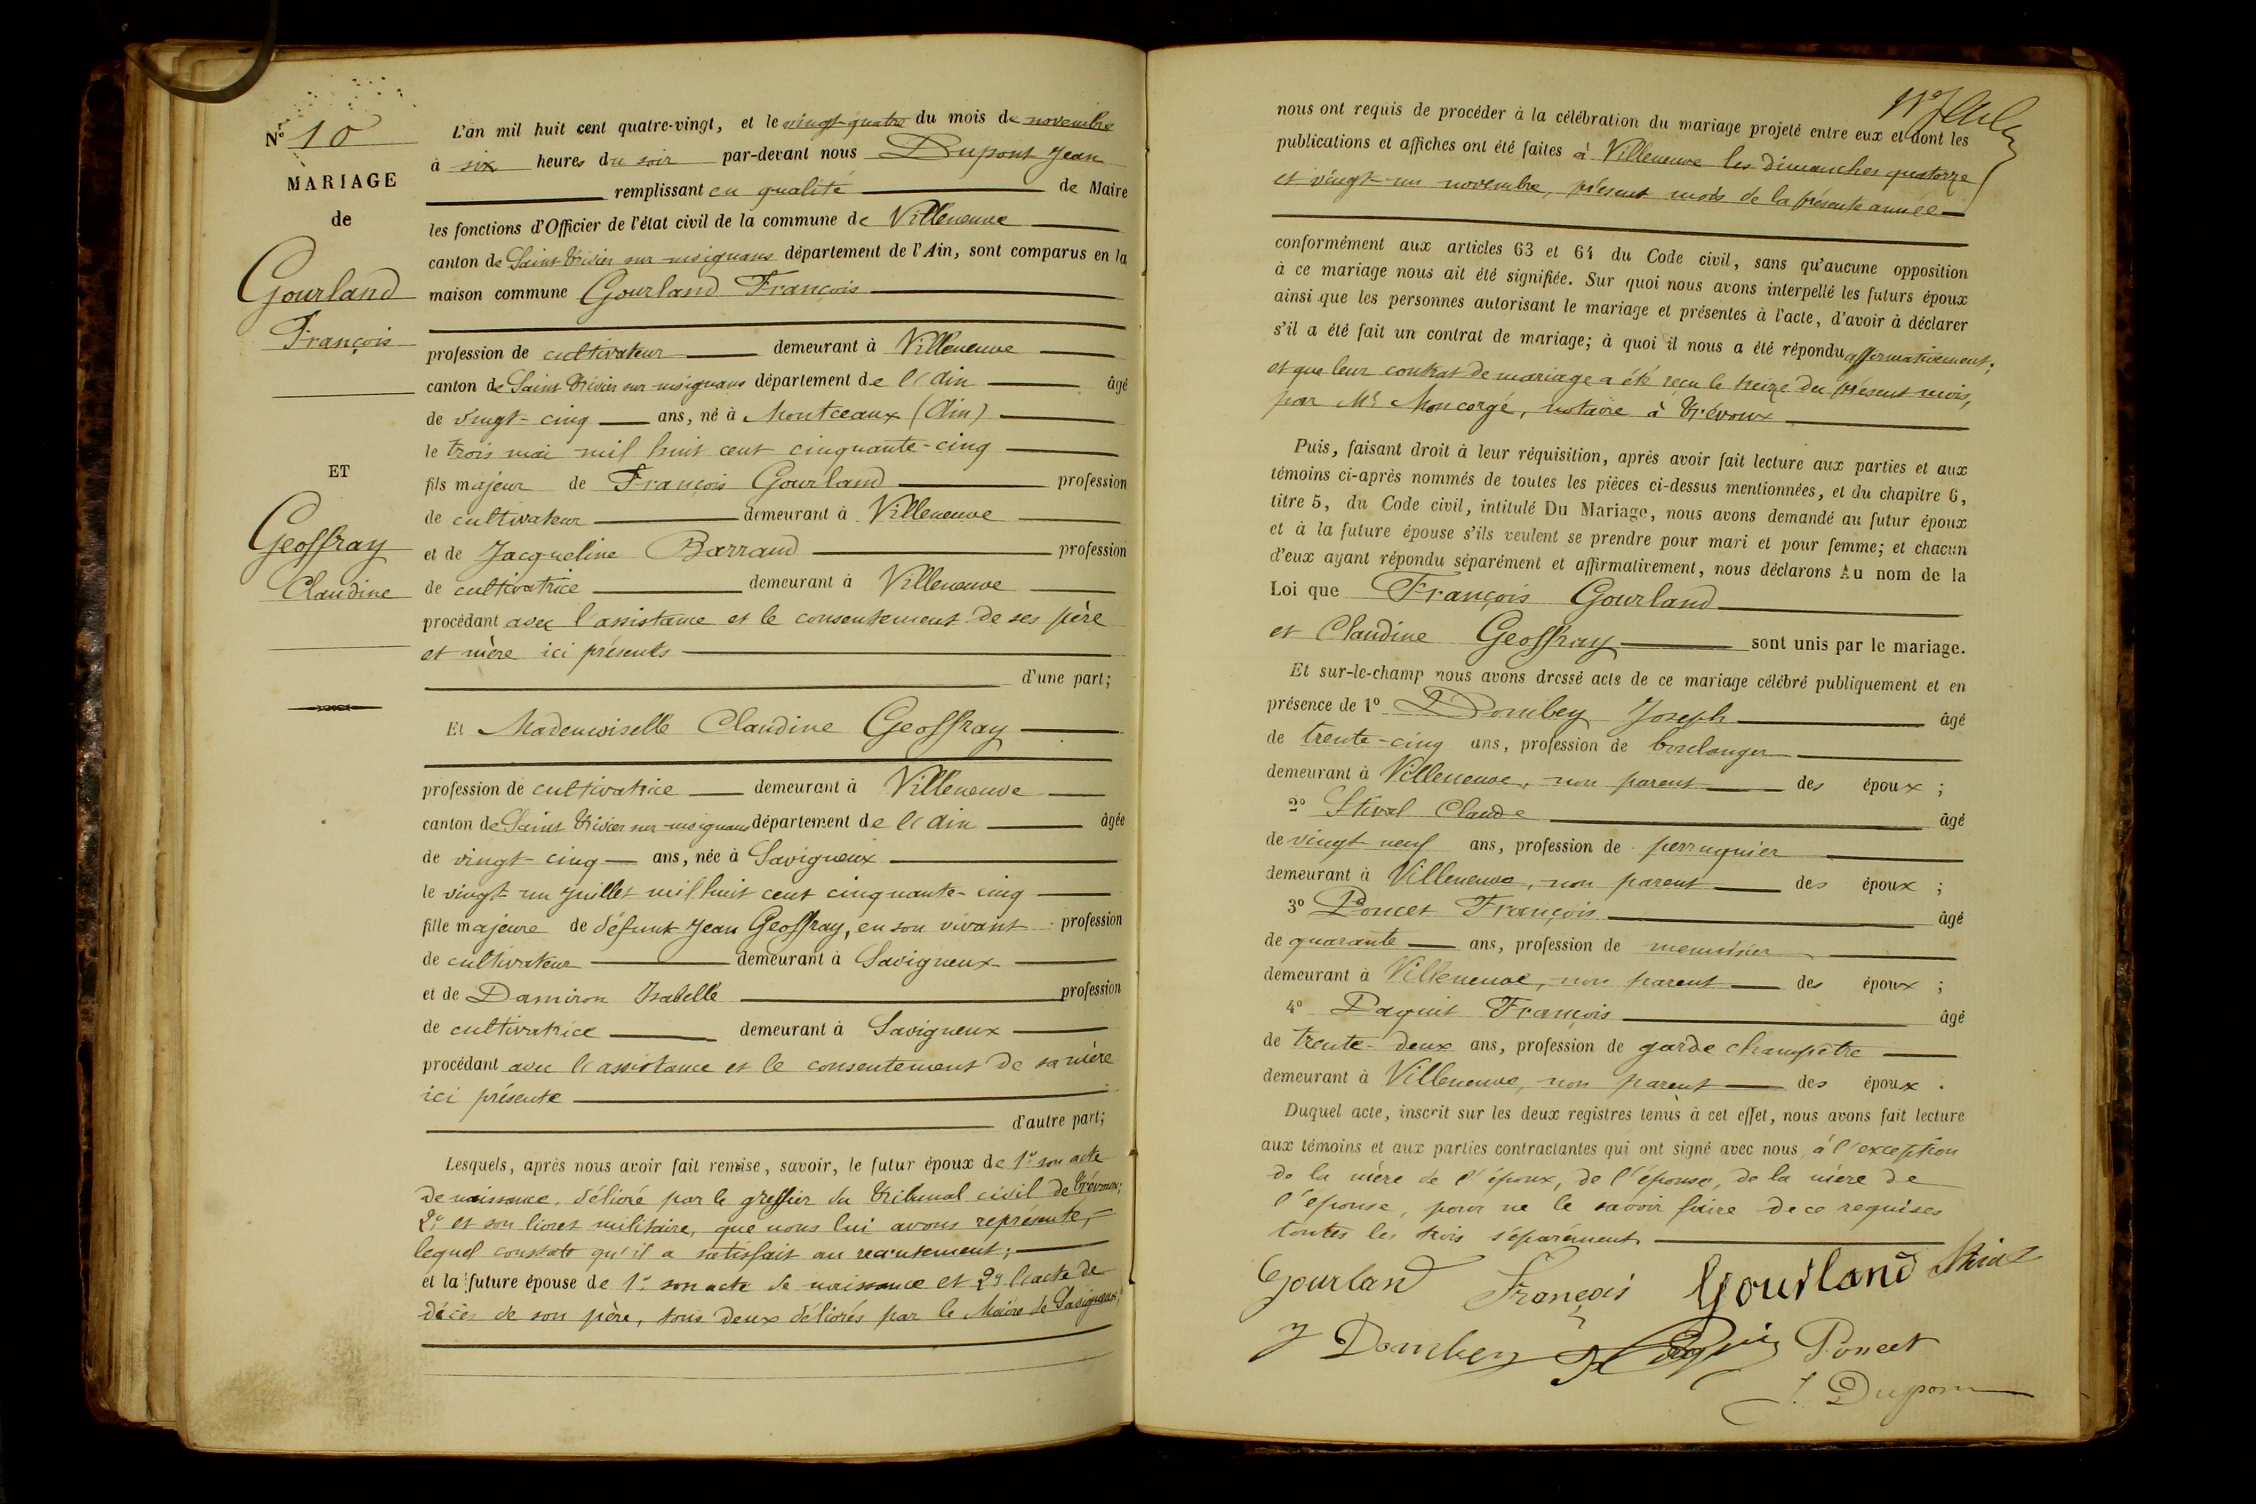 N° 10
MARIAGE
de
Gourland
François
ET
Geoffray
Claudine
L'an mil huit cent quatre-vingt, et le vingt quatre du mois de novembre
à six heures du soir par-devant nous Dupont Jean
remplissant en qualité de Maire
les fonctions d'Officier de l'état civil de la commune de Villeneuve
canton de Saint Trivier sur moignans département de l'Ain, sont comparus en la
maison commune Gourland François
profession de cultivateur demeurant à Villeneuve
canton de Saint Trivier sur moignans département de l'Ain âgé
de vingt-cinq ans, né à Montceaux (Ain)
le trois mai mil huit cent cinquante-cinq
fils majeur de François Gourland profession
de cultivateur demeurant à Villeneuve
et de Jacqueline Barraud profession
de cultivatrice demeurant à Villeneuve
procédant avec l'assistance et le consentement de ses père
et mère ici présents
d'une part;
Et Mademoiselle Claudine Geoffray
profession de cultivatrice demeurant à Villeneuve
canton de Saint Trivier sur moignans département de l'Ain âgée
de vingt-cinq ans, née à Savigneux
le vingt-un juillet mil huit cent cinquante-cinq
fille majeure de défunt Jean Geoffray, en son vivant profession
de cultivateur demeurant à Savigneux
et de Damiron Isabelle profession
de cultivatrice demeurant à Savigneux
procédant avec l'assistance et le consentement de sa mère
ici présente
d'autre part;
Lesquels, après nous avoir fait remise, savoir, le futur époux de 1° son acte
de naissance, délivré par le greffier du Tribunal civil de Trévoux;
2° et son livret militaire, que nous lui avons représenté,
lequel constate qu'il a satisfait au recrutement;
et la future épouse de 1° son acte de naissance et 2° l'acte de
décès de son père, tous deux délivrés par le Maire de Savigneux;
nous ont requis de procéder à la célébration du mariage projeté entre eux et dont les
publications et affiches ont été faites à Villeneuve les dimanches quatorze
et vingt-un novembre, présent mois de la présente année
conformément aux articles 63 et 64 du Code civil, sans qu'aucune opposition
à ce mariage nous ait été signifiée. Sur quoi nous avons interpellé les futurs époux
ainsi que les personnes autorisant le mariage et présentes à l'acte, d'avoir à déclarer
s'il a été fait un contrat de mariage; à quoi il nous a été répondu affirmativement;
et que leur contrat de mariage a été reçu le treize du présent mois,
par Me Moncorgé, notaire à Trévoux
Puis, faisant droit à leur réquisition, après avoir fait lecture aux parties et aux
témoins ci-après nommés de toutes les pièces ci-dessus mentionnées, et du chapitre 6,
titre 5, du Code civil, intitulé Du Mariage, nous avons demandé au futur époux
et à la future épouse s'ils veulent se prendre pour mari et pour femme; et chacun
d'eux ayant répondu séparément et affirmativement, nous déclarons Au nom de la
Loi que François Gourland
et Claudine Geoffray sont unis par le mariage.
Et sur-le-champ nous avons dressé acte de ce mariage célébré publiquement et en
présence de 1° Dombey Joseph âgé
de trente-cinq ans, profession de boulanger
demeurant à Villeneuve, non parent des époux ;
2° Claude âgé
de vingt neuf ans, profession de perruquier
demeurant à Villeneuve, non parent des époux ;
3° Poncet François âgé
de quarante ans, profession de menuisier
demeurant à Villeneuve, non parent des époux ;
4° Paquit François âgé
de trente-deux ans, profession de garde champêtre
demeurant à Villeneuve, non parent des époux .
Duquel acte, inscrit sur les deux registres tenus à cet effet, nous avons fait lecture
aux témoins et aux parties contractantes qui ont signé avec nous, à l'exception
de la mère de l'époux, de l'épouse, de la mère de
l'épouse, pour ne le savoir faire de ce requises
toutes les trois séparément
Gourland François Gourland
J Dombey Poncet
J. Dupont